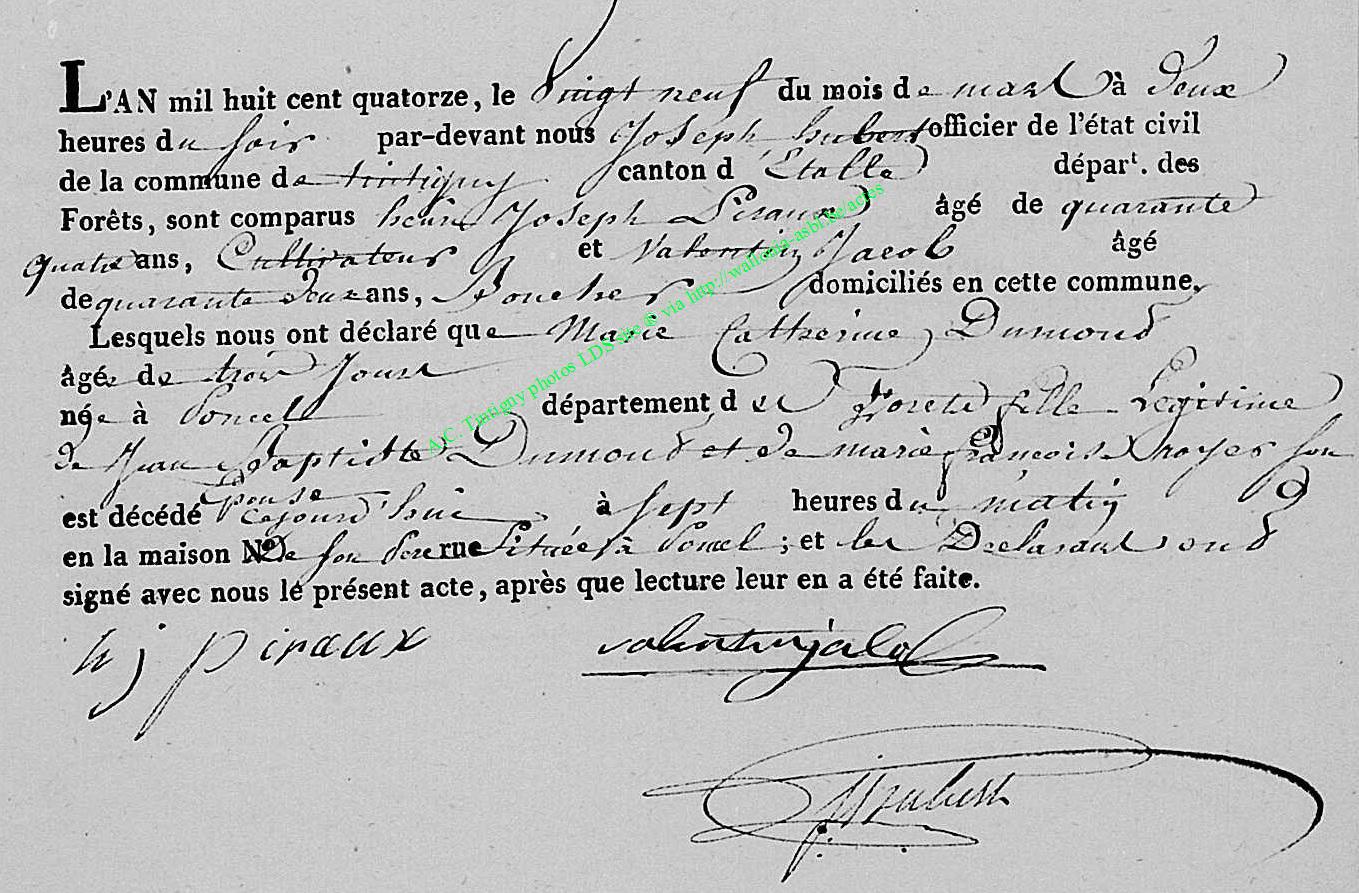 L'AN mil huit cent quatorze, le Vingt neuf du mois de mars à deux
heures du soir par-devant nous Joseph hubert officier de l'état civil
de la commune de tintigny canton d'Etalle dépar.t des
Forêts, sont comparus henri Joseph Piraux âgé de quarante
quatre ans, Cultivateur et Valentin Jacob âgé
de quarante deux ans, Boucher domiciliés en cette commune,
Lesquels nous ont déclaré que Marie Catherine Dumond
âgée de trois Jours
née à Poncel département des Forets fille Legitime
de Jean Baptiste Dumond et de marie françoise son
Epouse
est décédé cejourd'hui à sept heures du matin
en la maison No de son pere rue Située à Poncel ; et les Declarants ont
signé avec nous le présent acte, après que lecture leur en a été faite.
h j piraux valentin jacob
JHubert
A.C. Tintigny photos LDS site @ via http://wallonia-asbl.be/actes